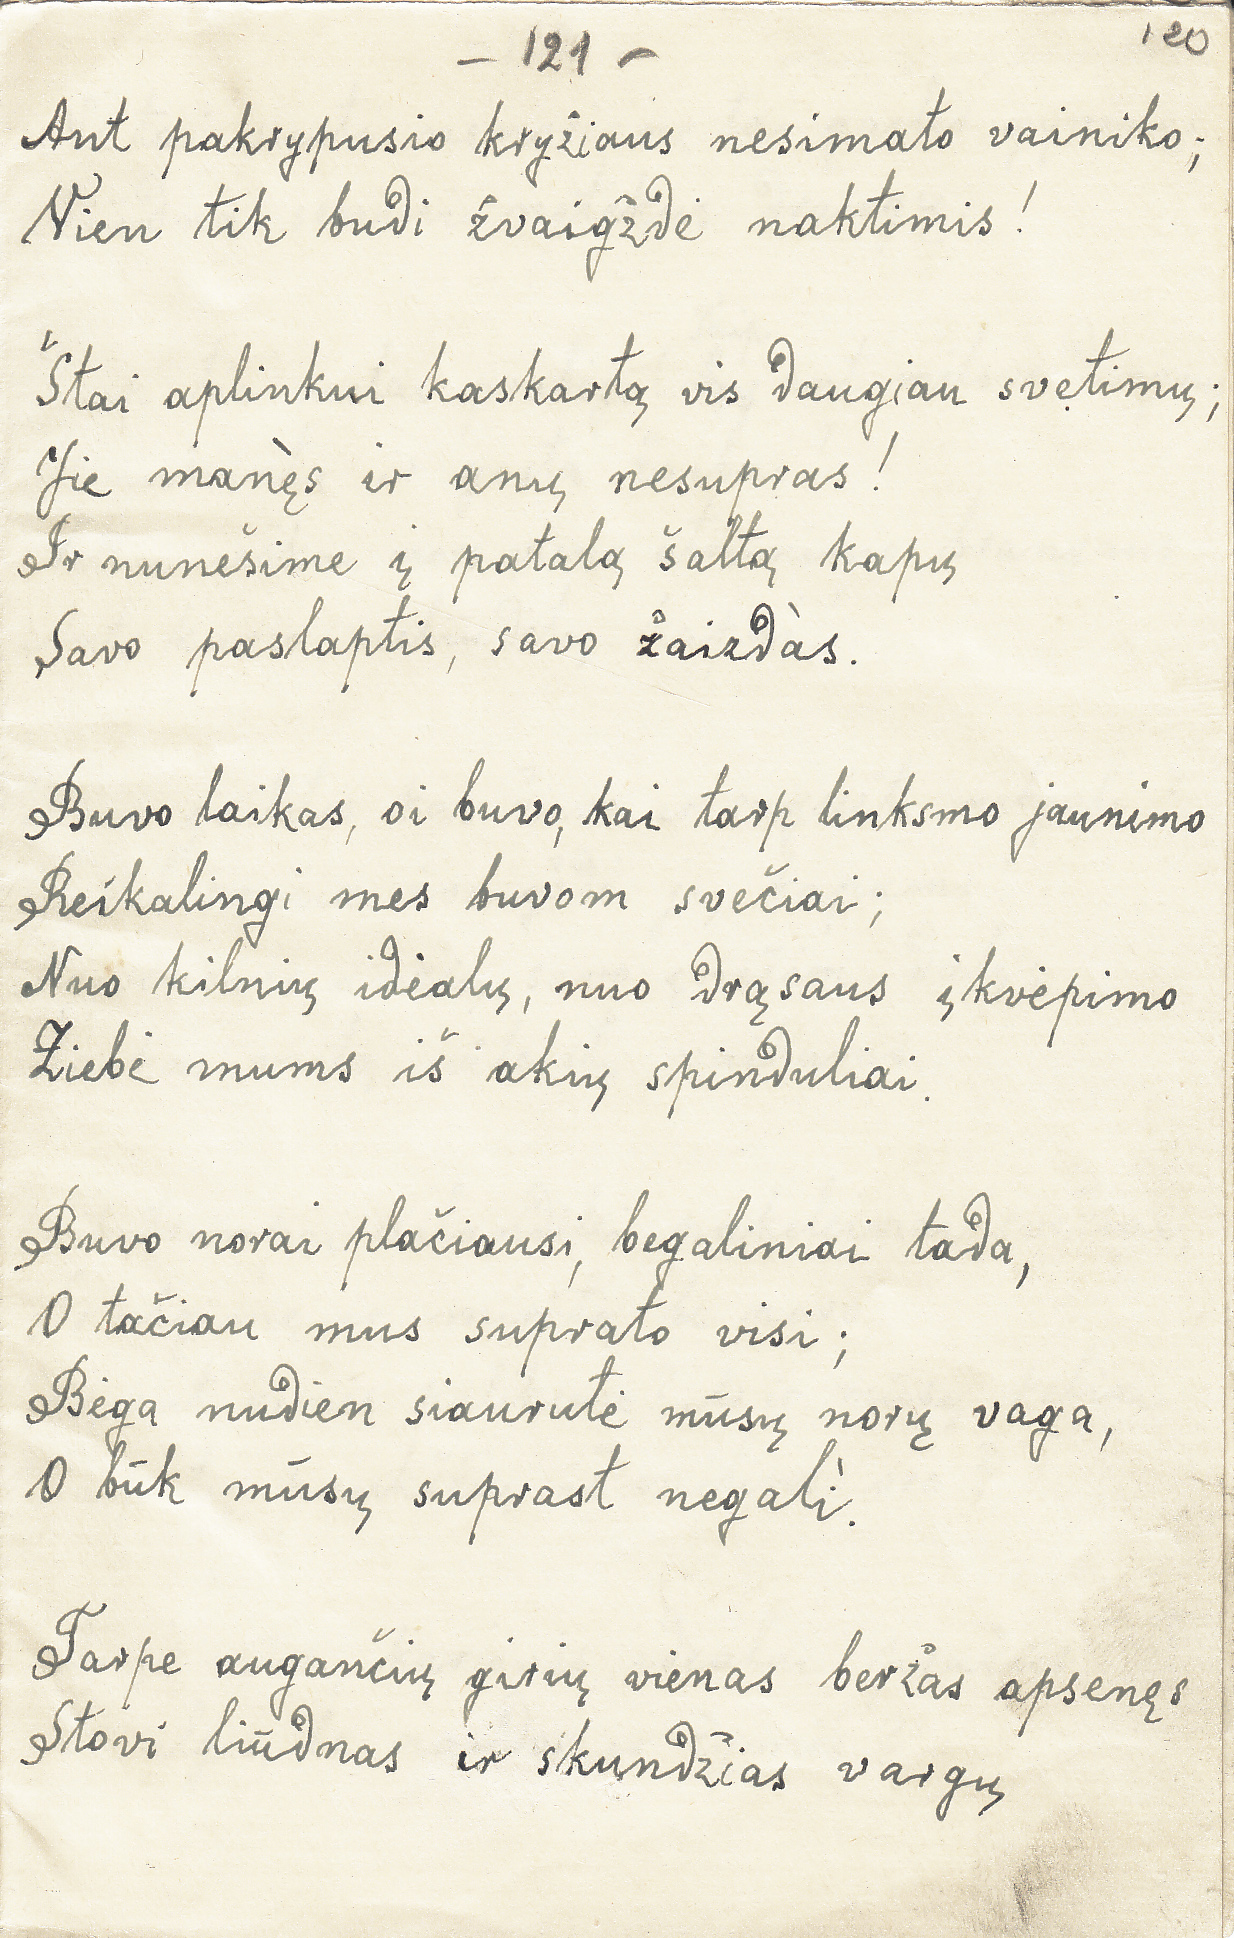 120
– 121 –
Ant pakrypusio kryžiaus nesimato vainiko;
Vien tik budi žvaigždė naktimis!
Štai aplinkui kaskartą vis daugiau svetimų;
Jie manęs ir anų nesupras!
Ir nunešime į patalą šaltą kapų
Savo paslaptis, savo žaizdàs.
Buvo laikas, oi buvo, kai tarp linksmo jaunimo
Reikalingi mes buvom svečiai;
Nuo kilnių idėalų, nuo drąsaus įkvėpimo
Žiebė mums iš akių spinduliai.
Buvo norai plačiausi, begaliniai tada,
O tačiau mus suprato visi;
Bėga nudien siaurutė mūsų norų vaga,
O būk mūsų suprast negalì.
Tarpe augančių girių vienas beržas apsenęs
Stovi liūdnas ir skundžias vargų